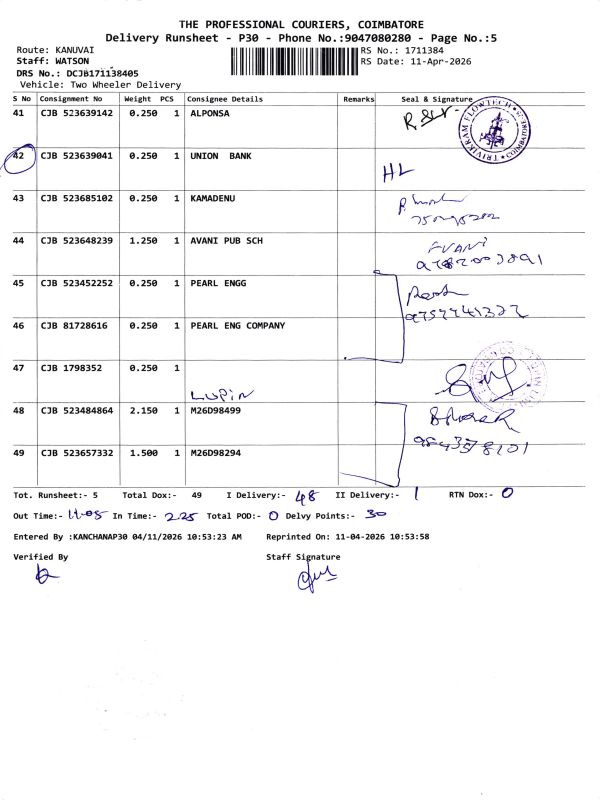 THE PROFESSIONAL COURIERS, COIMBATORE
Delivery Runsheet - P30 - Phone No.:9047080280 - Page No.:5
Route: KANUVAI
RS No.: 1711384
Staff: WATSON
RS Date: 11-Apr-2026
DRS No.: DCJB171138405
Vehicle: Two Wheeler Delivery
S No Consignment No Weight PCS Consignee Details Remarks Seal & Signature
41 CJB 523639142 0.250 1 ALPONSA
42 CJB 523639041 0.250 1 UNION BANK
HL
43 CJB 523685102 0.250 1 KAMADENU
44 CJB 523648239 1.250 1 AVANI PUB SCH
AVANI
45 CJB 523452252 0.250 1 PEARL ENGG
46 CJB 81728616 0.250 1 PEARL ENG COMPANY
47 CJB 1798352 0.250 1
LUPIN
48 CJB 523484864 2.150 1 M26D98499
49 CJB 523657332 1.500 1 M26D98294
Tot. Runsheet:- 5 Total Dox:- 49 I Delivery:- 48 II Delivery:- 1 RTN Dox:- 0
Out Time:- 11-05 In Time:- 2.25 Total POD:- 0 Delvy Points:- 30
Entered By :KANCHANAP30 04/11/2026 10:53:23 AM Reprinted On: 11-04-2026 10:53:58
Verified By Staff Signature